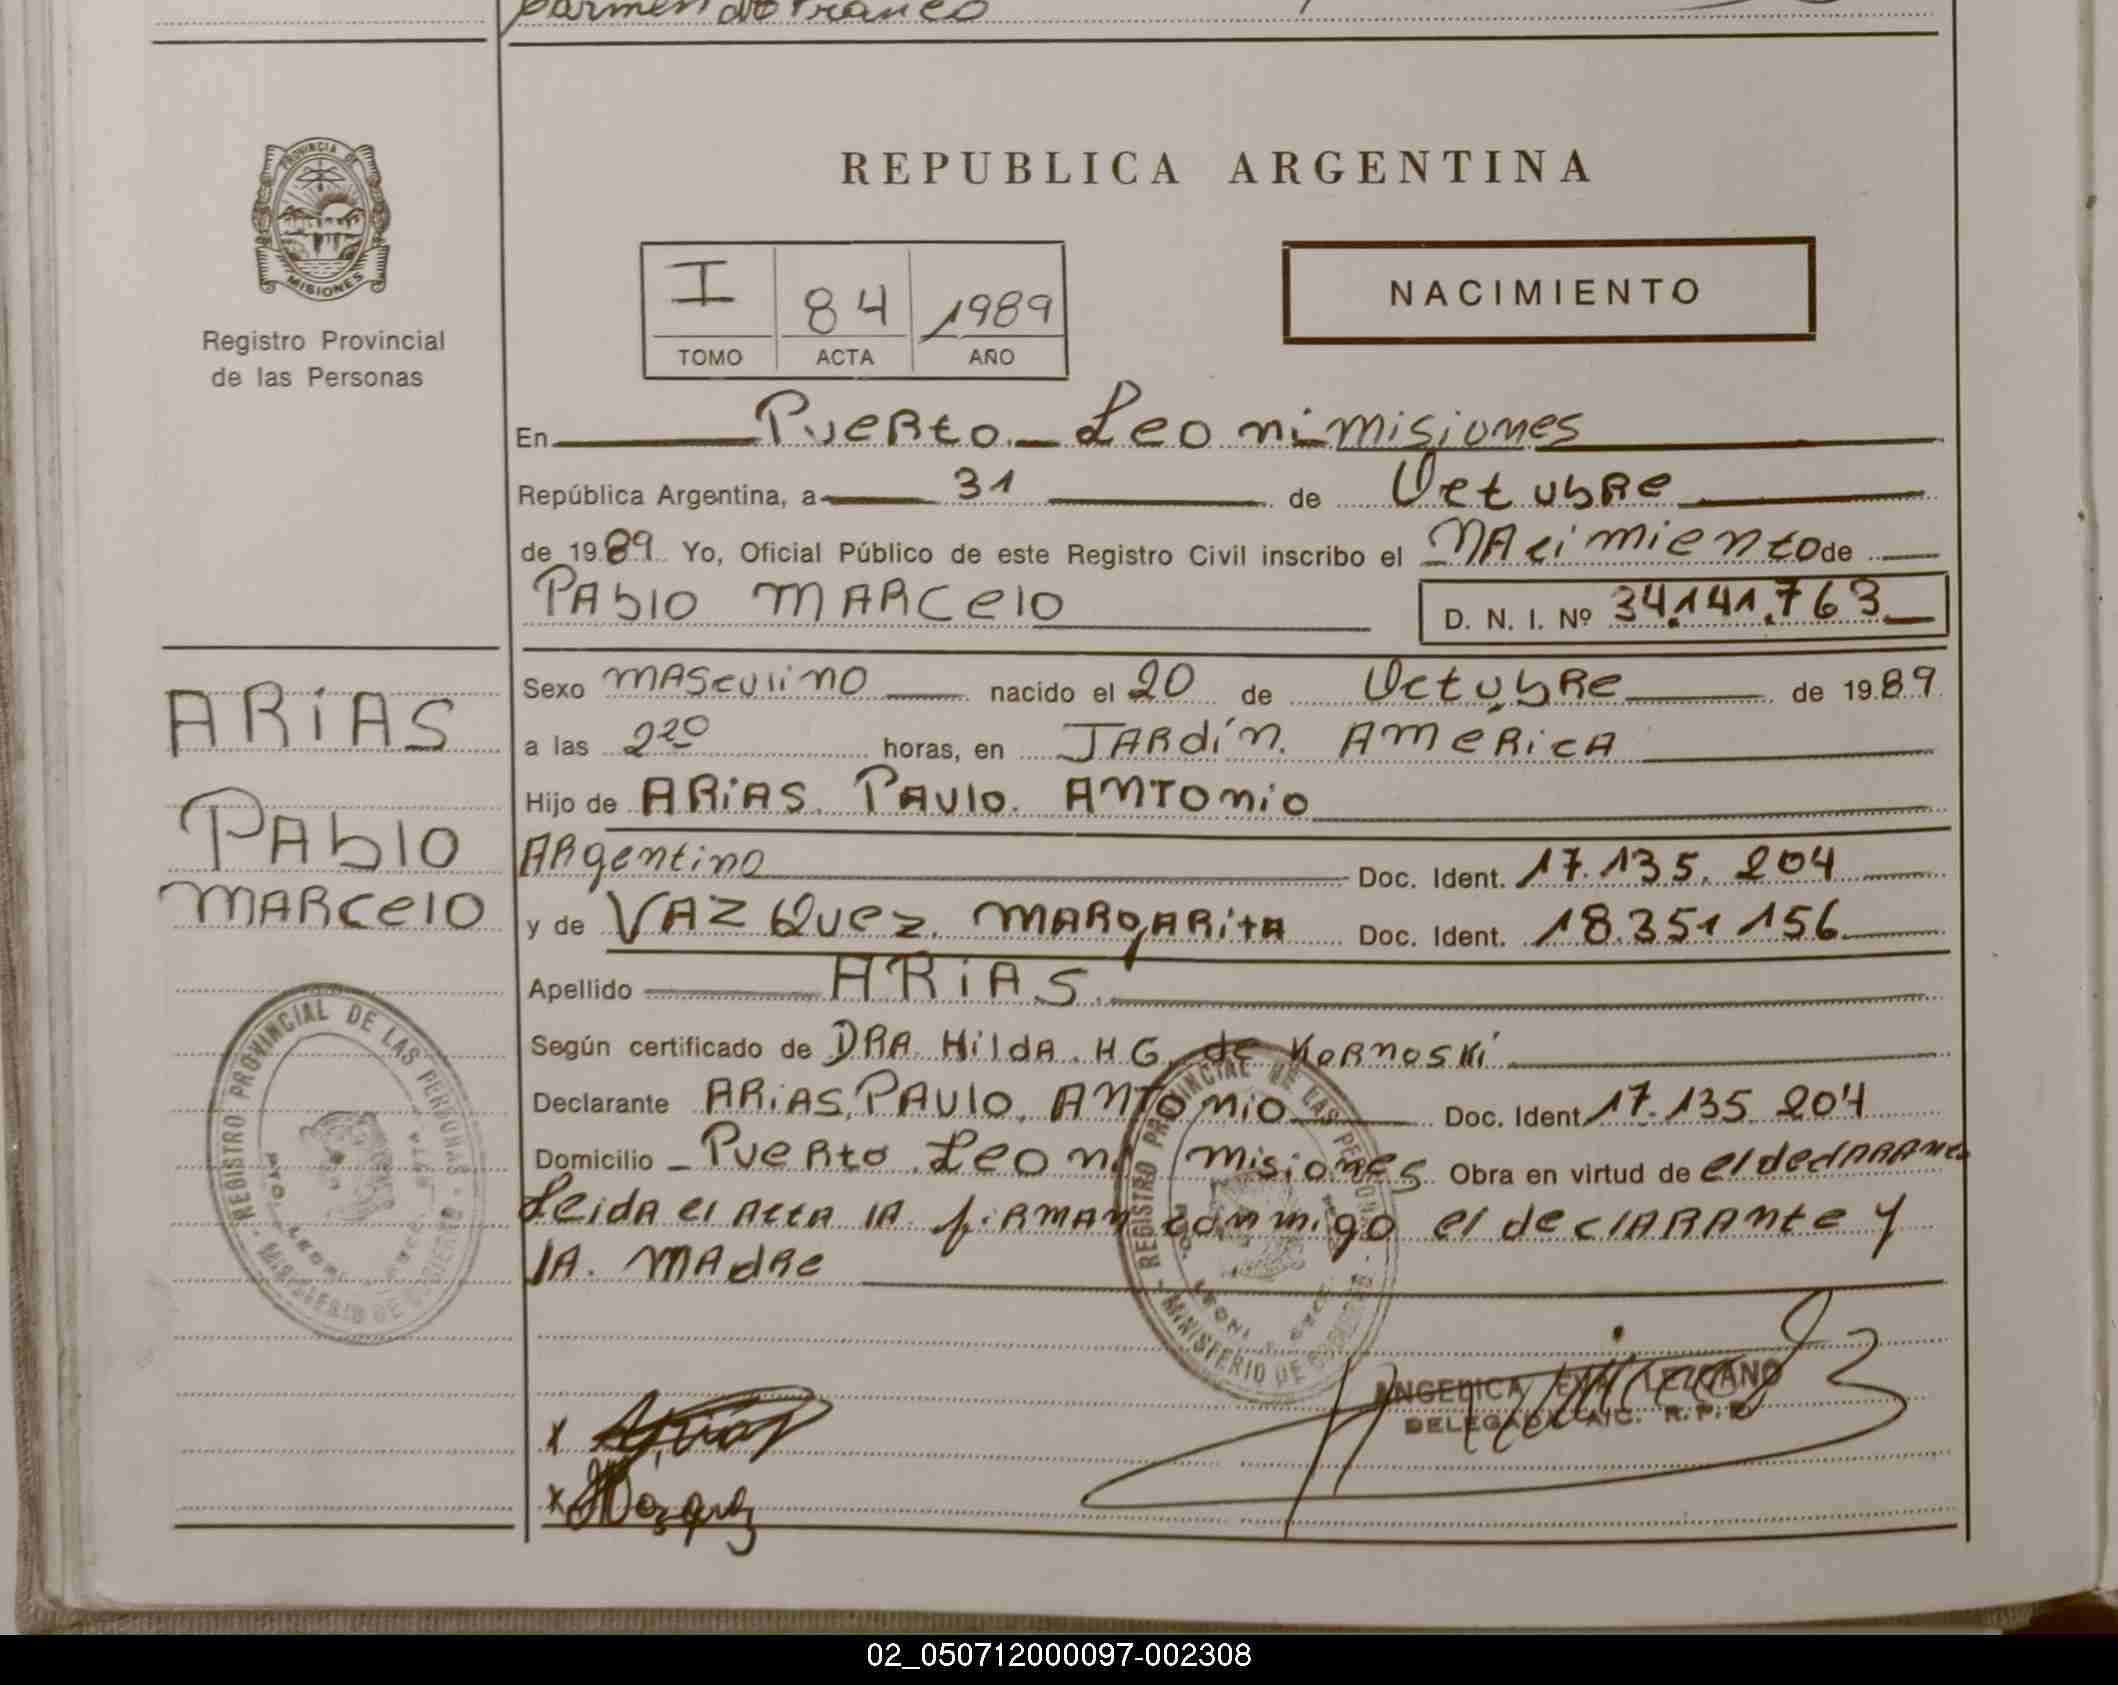 Carmen de Franco
PROVINCIA DE
MISIONES
Registro Provincial
de las Personas
REPUBLICA ARGENTINA
I 84 1989
TOMO ACTA AÑO
NACIMIENTO
En Puerto Leoni misiones
República Argentina, a 31 de Octubre
de 1989 Yo, Oficial Público de este Registro Civil inscribo el NAcimiento de
PAblo MARcelo D. N. I. Nº 34.141.763
Sexo MASculino nacido el 20 de Octubre de 1989
a las 2²⁰ horas, en JARdín AméRicA
Hijo de ARiAS PAulo ANTonio
ARgentino Doc. Ident. 17.135.204
y de VAZQuez MARgARitA Doc. Ident. 18.351 156
Apellido ARiAS
Según certificado de DRA Hilda H G de KoRnoski
Declarante ARiAS, PAulo ANTonio Doc. Ident. 17.135 204
Domicilio Puerto Leoni Misiones Obra en virtud de el declarante
Leida el Acta la firman conmigo el declARAnte y
la MAdre
ARiAS
PAblo
MARcelo
REGISTRO PROVINCIAL DE LAS PERSONAS
MINISTERIO DE GOBIERNO
PTO. LEONI
REGISTRO PROVINCIAL DE LAS PERSONAS
MINISTERIO DE GOBIERNO
LEONI
x
x
ANGELICA EVA LEZCANO
02_050712000097-002308